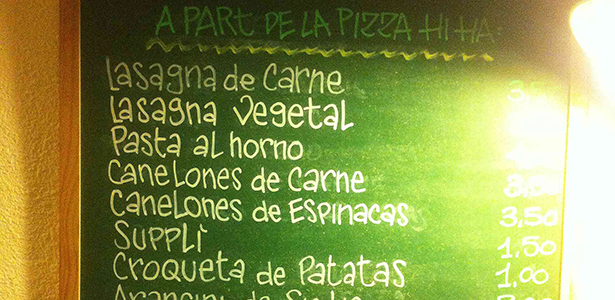 A PART DE LA PIZZA HI HA:
Lasagna de Carne
Lasagna Vegetal
Pasta al horno
Canelones de Carne
Canelones de Espinacas 3,50
Supplì 1,50
Croqueta de Patatas 1,00